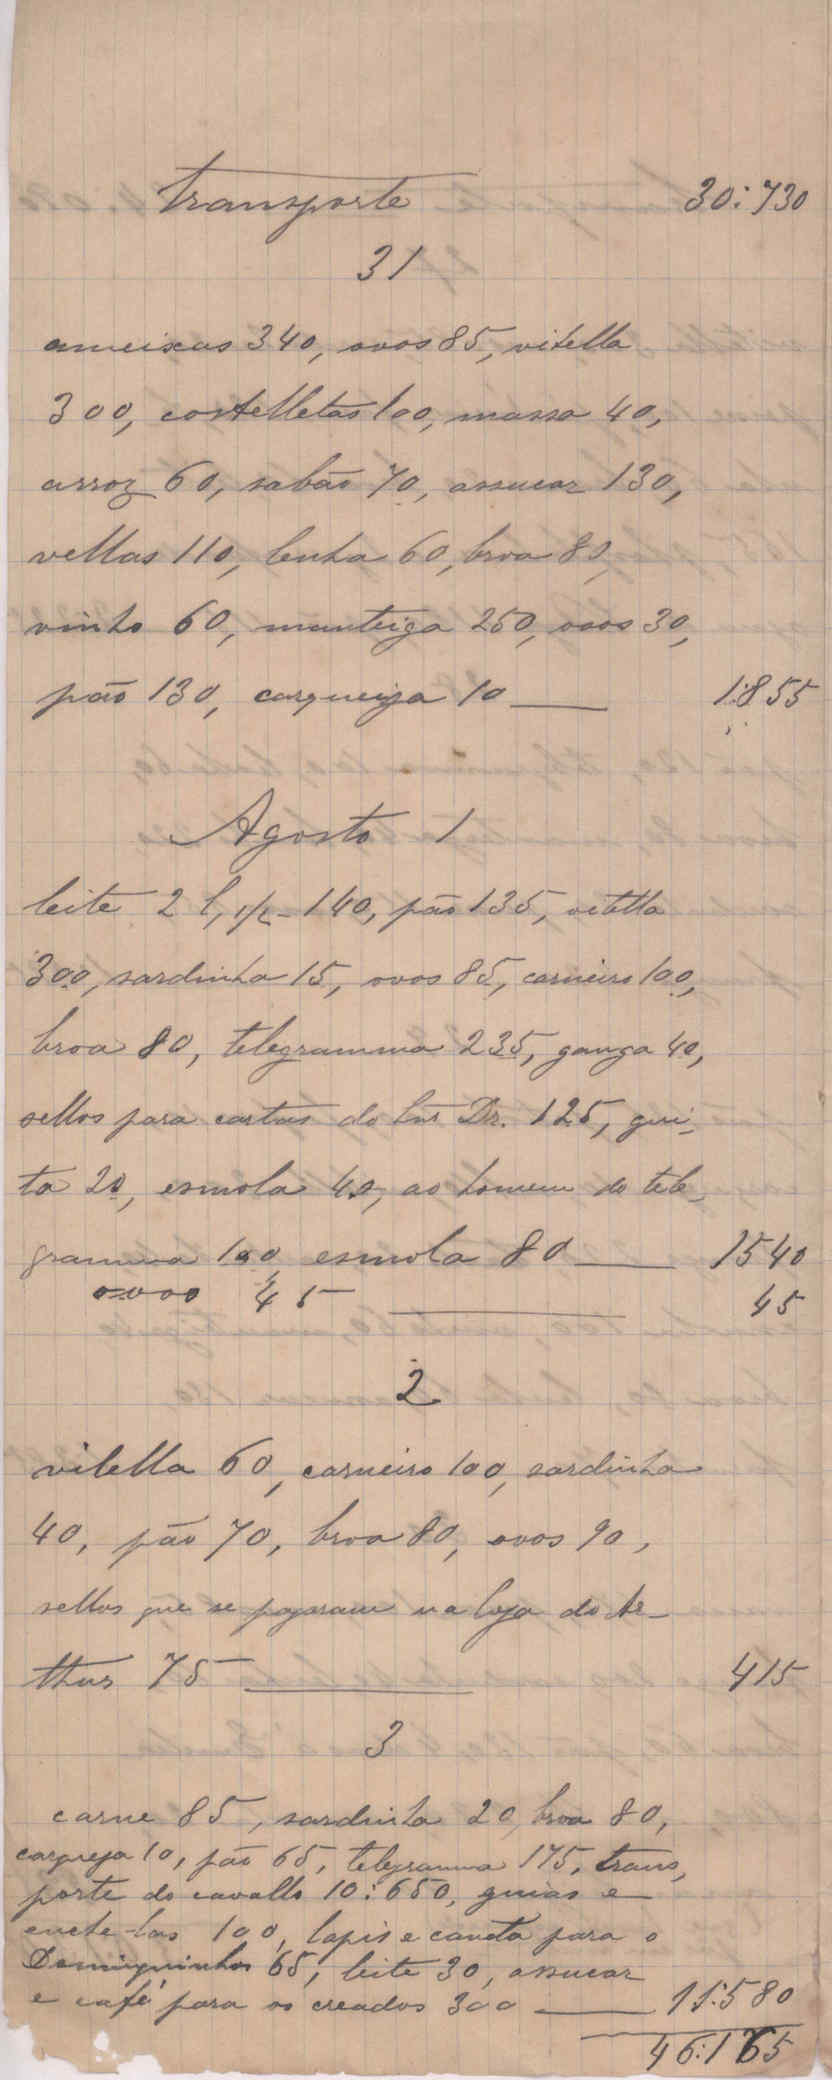 Transporte 30:730
31
ameixas 340, ovos 85, vitella
300, costelletas 100, massa 40,
arroz 60, sabão 70, assucar 130,
vellas 110, lenha 60, broa 80,
vinho 60, manteiga 250, ovos 30,
pão 130, carqueija 10 1:855
Agosto 1
leite 2 l, 1/2 - 140, pão 135, vitella
300, sardinha 15, ovos 85, carneiro 100,
broa 80, telegramma 235, ganga 40,
sellos para cartas do Snr Dr. 125, gui-
ta 20, esmola 40, ao homem do tele-
gramma 100, esmola 80 1540
ovos 45 45
2
vitella 60, carneiro 100, sardinha
40, pão 70, broa 80, ovos 90,
sellos que se pagaram na loja do Ar-
thur 75 415
3
carne 85, sardinha 20, broa 80,
carqueja 10, pão 65, telegramma 175, trans-
porte do cavallo 10:650, guias e
enche-las 100, lapis e caneta para o
Dominguinhos 65, leite 30, assucar
e café para os creados 300 11:580
46:165